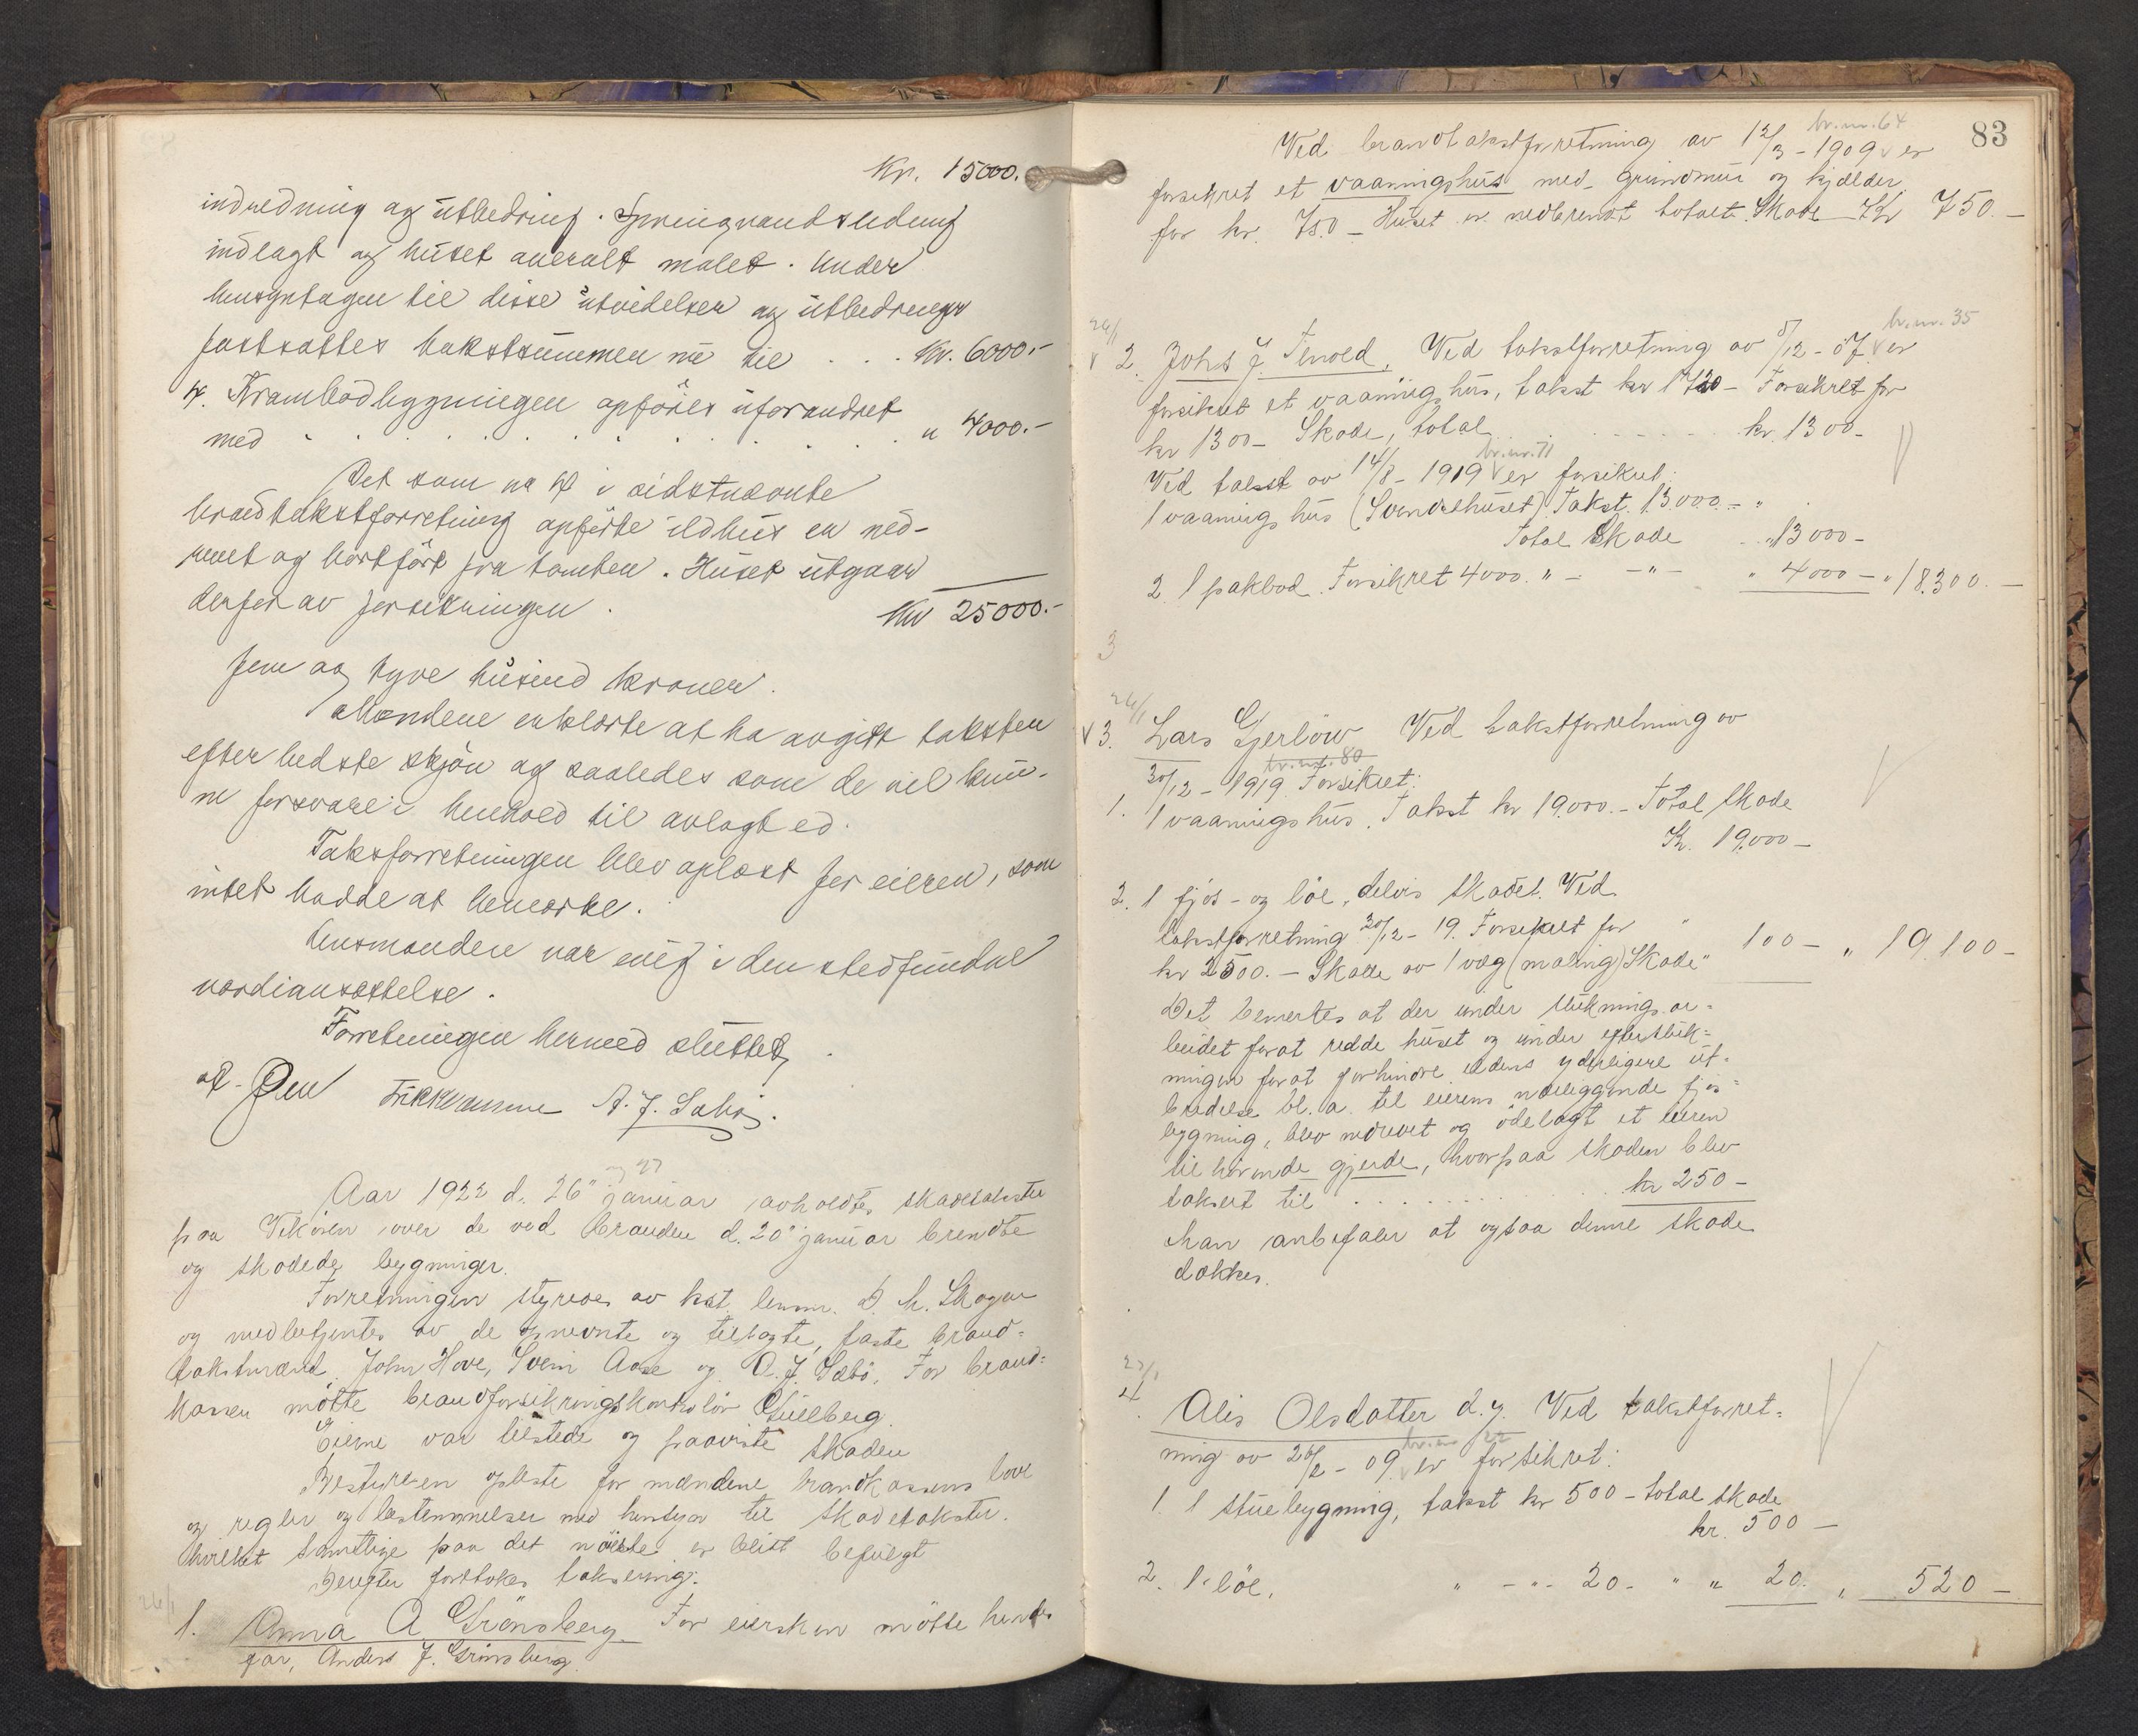 Kr. 15000.
indredning og utbedring. Springvandsledning
indlagt og huset overalt malet. Under
hensyntagen til disse utvidelser og utbedringer
fastsattes takstsummen nu til . . . kr. 6000.-
4. Krambodbygningen opföres uforandret
med . . . . . . . . . . . " 4000.-
Det som nr 4 i sidstnævnte
brandtakstforretning opförte ildhus er ned-
revet og bortfört fra tomten. Huset utgaar
derfor av forsikringen.
Kr 25000.-
fem og tyve tusind kroner.
Mændene erklærte at ha avgitt taksten
efter bedste skjön og saaledes som de vil kun-
ne forsvare i henhold til avlagt ed.
Takstforretningen blev oplæst for eieren, som
intet hadde at bemærke.
Lensmanden var enig i den stedfundne
værdiansættelse.
Forretningen hermed sluttet.
A. J. Sæbö.
og 27
Aar 1922 d. 26" januar avholdtes skadetakster
paa Vikören over de ved branden d. 20" januar brendte
og skadede bygninger.
Forretningen styredes av kst. lensm. D. M. Skogen
og medbetjentes av de opnevnte og tillagte, faste brand=
takstmænd John Hove, Svein Aase og A. J. Sæbö. For brand=
kassen mötte brandforsikringskontrolör Stueberg.
Eierne var tilstede og paaviste skaden
Bestyreren oplæste for mændene brandkassens love
og regler og bestemmelser med hensyn til skadetakster.
hvilket samtlige paa det nöieste er blit befulgt
Derefter foretokes taksering:
26/1
1. Anna A. Grönsberg. For eiersken mötte hendes
far, Anders J. Grönsberg.
83
br.nr. 64
Ved brandtakstforretning av 12/3 - 1909 er
forsikret et vaaningshus med grundmur og kjælder
for kr. 750 - Huset er nedbrendt totalt. Skade Kr 750.-
26/1
br.nr. 35
2. Johs J. Tenold. Ved takstforretning av 5/12 - 07 er
forsikret et vaaningshus, takst kr 1720 - Forsikret for
kr 1300 - Skade, total . . . . . kr. 1300 -
br.nr. 71
Ved takst av 14/8 - 1919 er forsikret:
1 vaaningshus (Svendsehuset) Takst. 13000.- "
Total Skade . . " 13000 -
2. 1 pakbod. Forsikret 4000. " - - " - " 4000 - " 18.300.-
3
26/1
3. Lars Gjerlöw Ved takstforretning av
br.nr. 80
30/12 - 1919 Forsikret:
1. 1 vaaningshus. Takst kr 19.000.- Total skade
Kr. 19.000 -
2. 1 fjös - og löe, delvis skadet. Ved
takstforretning 30/12 - 19. Forsikret for
kr 2500. - Skade av 1 væg (maling) Skade " 100 - " 19.100 -
Det bemerkes at der under slukningsar=
beidet for at redde huset og under efterslук=
ningen for at forhindre ildens yderligere ut=
bredelse bl. a. til eierens nærliggende fjös=
bygning, blev nedrevet og ödelagt et eieren
tilhörende gjerde, hvorpaa skaden blev
taksert til . . . . . . . . kr 250 -
Man anbefaler at ogsaa denne skade
dækkes.
27/1
4. Alis Olsdatter d.y. Ved takstforret=
br.nr 22
ning av 26/2 - 09 er forsikret:
1. 1 stuebygning, takst kr 500 - total skade
kr. 500 -
2. 1 löe, " - " - 20 - " " 20. " 520 -